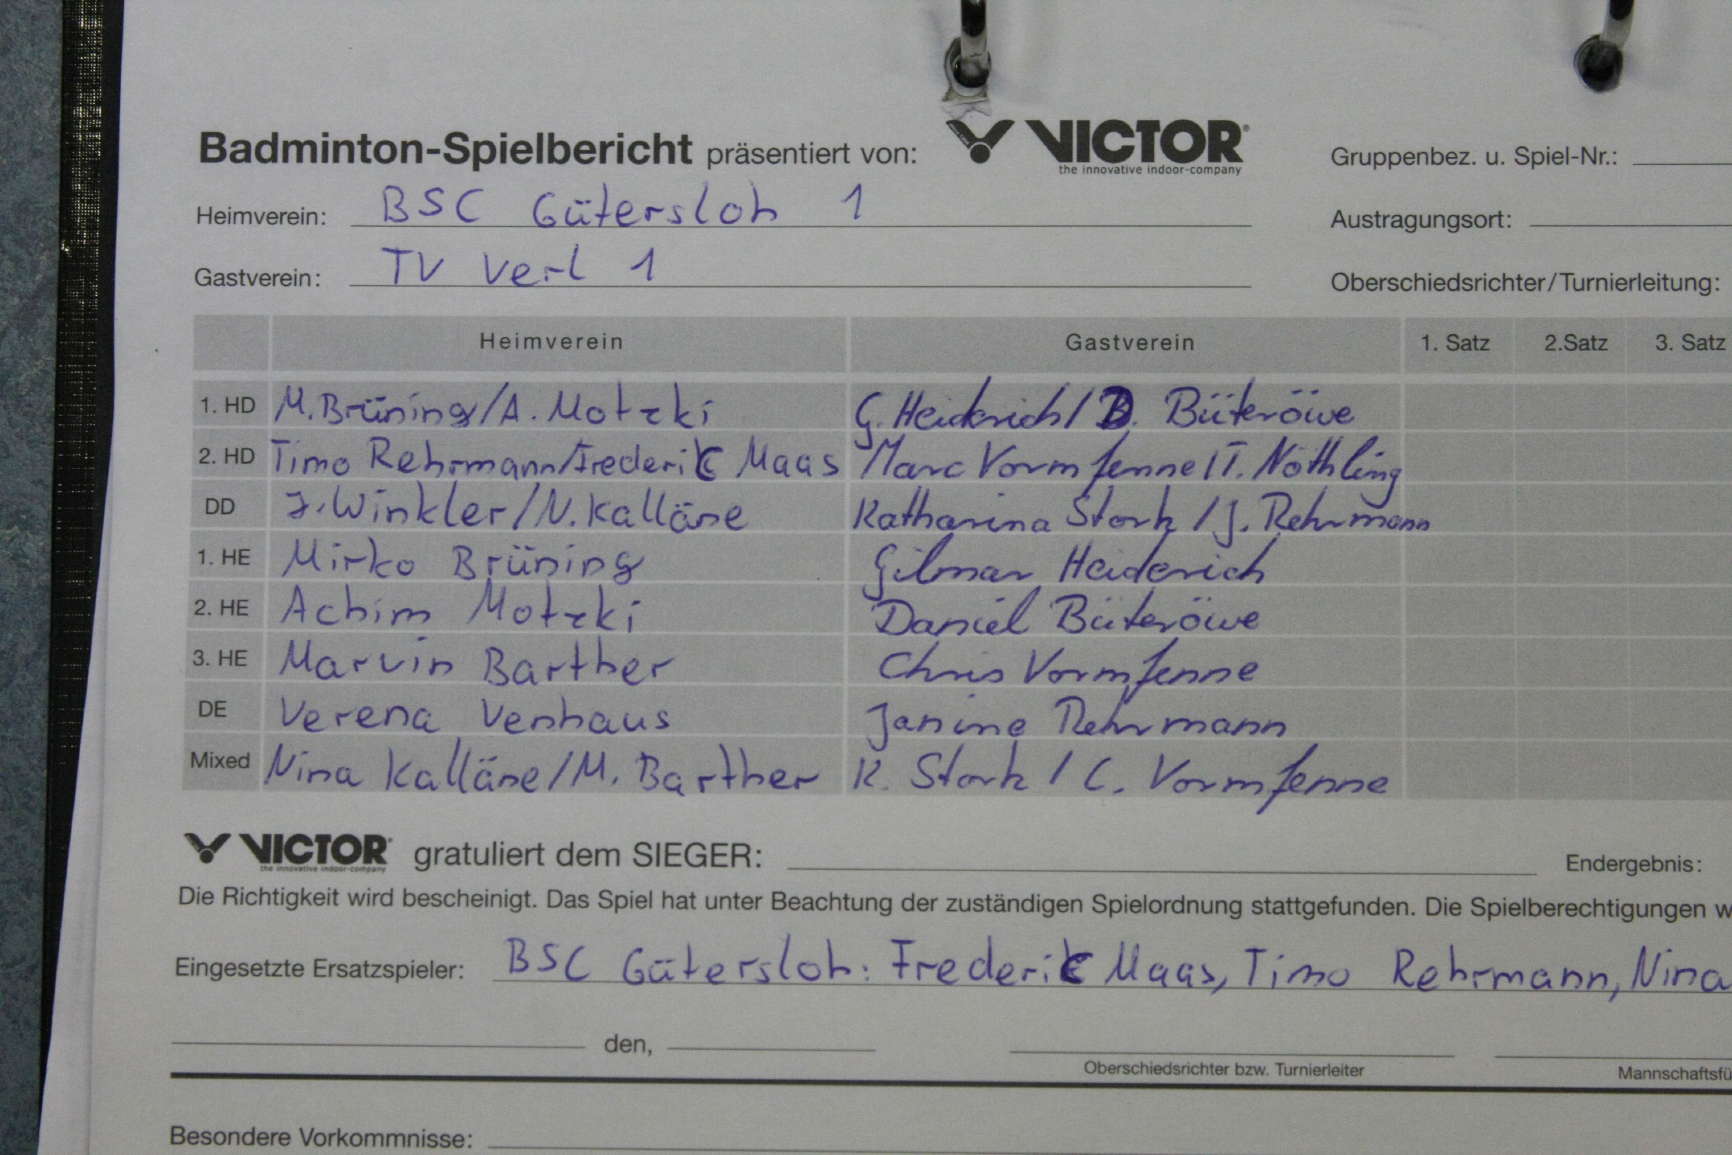 Badminton-Spielbericht präsentiert von: VICTOR Gruppenbez. u. Spiel-Nr.:
the innovative indoor-company
Heimverein: BSC Gütersloh 1 Austragungsort:
Gastverein: TV Verl 1 Oberschiedsrichter/Turnierleitung:
Heimverein Gastverein 1. Satz 2.Satz 3. Satz
1. HD M.Brüning/A. Motzki G. Heiderich/D. Büteröwe
2. HD Timo Rehrmann/Frederic Maas Marc Vormfenne/T. Nöthling
DD J.Winkler/N.Kalläne Katharina Stork/J. Rehrmann
1. HE Mirko Brüning Gilmar Heiderich
2. HE Achim Motzki Daniel Büteröwe
3. HE Marvin Barther Chris Vormfenne
DE Verena Venhaus Janine Rehrmann
Mixed Nina Kalläne/M. Barther K. Stork/C. Vormfenne
VICTOR gratuliert dem SIEGER: Endergebnis:
the innovative indoor-company
Die Richtigkeit wird bescheinigt. Das Spiel hat unter Beachtung der zuständigen Spielordnung stattgefunden. Die Spielberechtigungen w
Eingesetzte Ersatzspieler: BSC Gütersloh: Frederic Maas, Timo Rehrmann, Nina
den,
Oberschiedsrichter bzw. Turnierleiter Mannschaftsfü
Besondere Vorkommnisse: